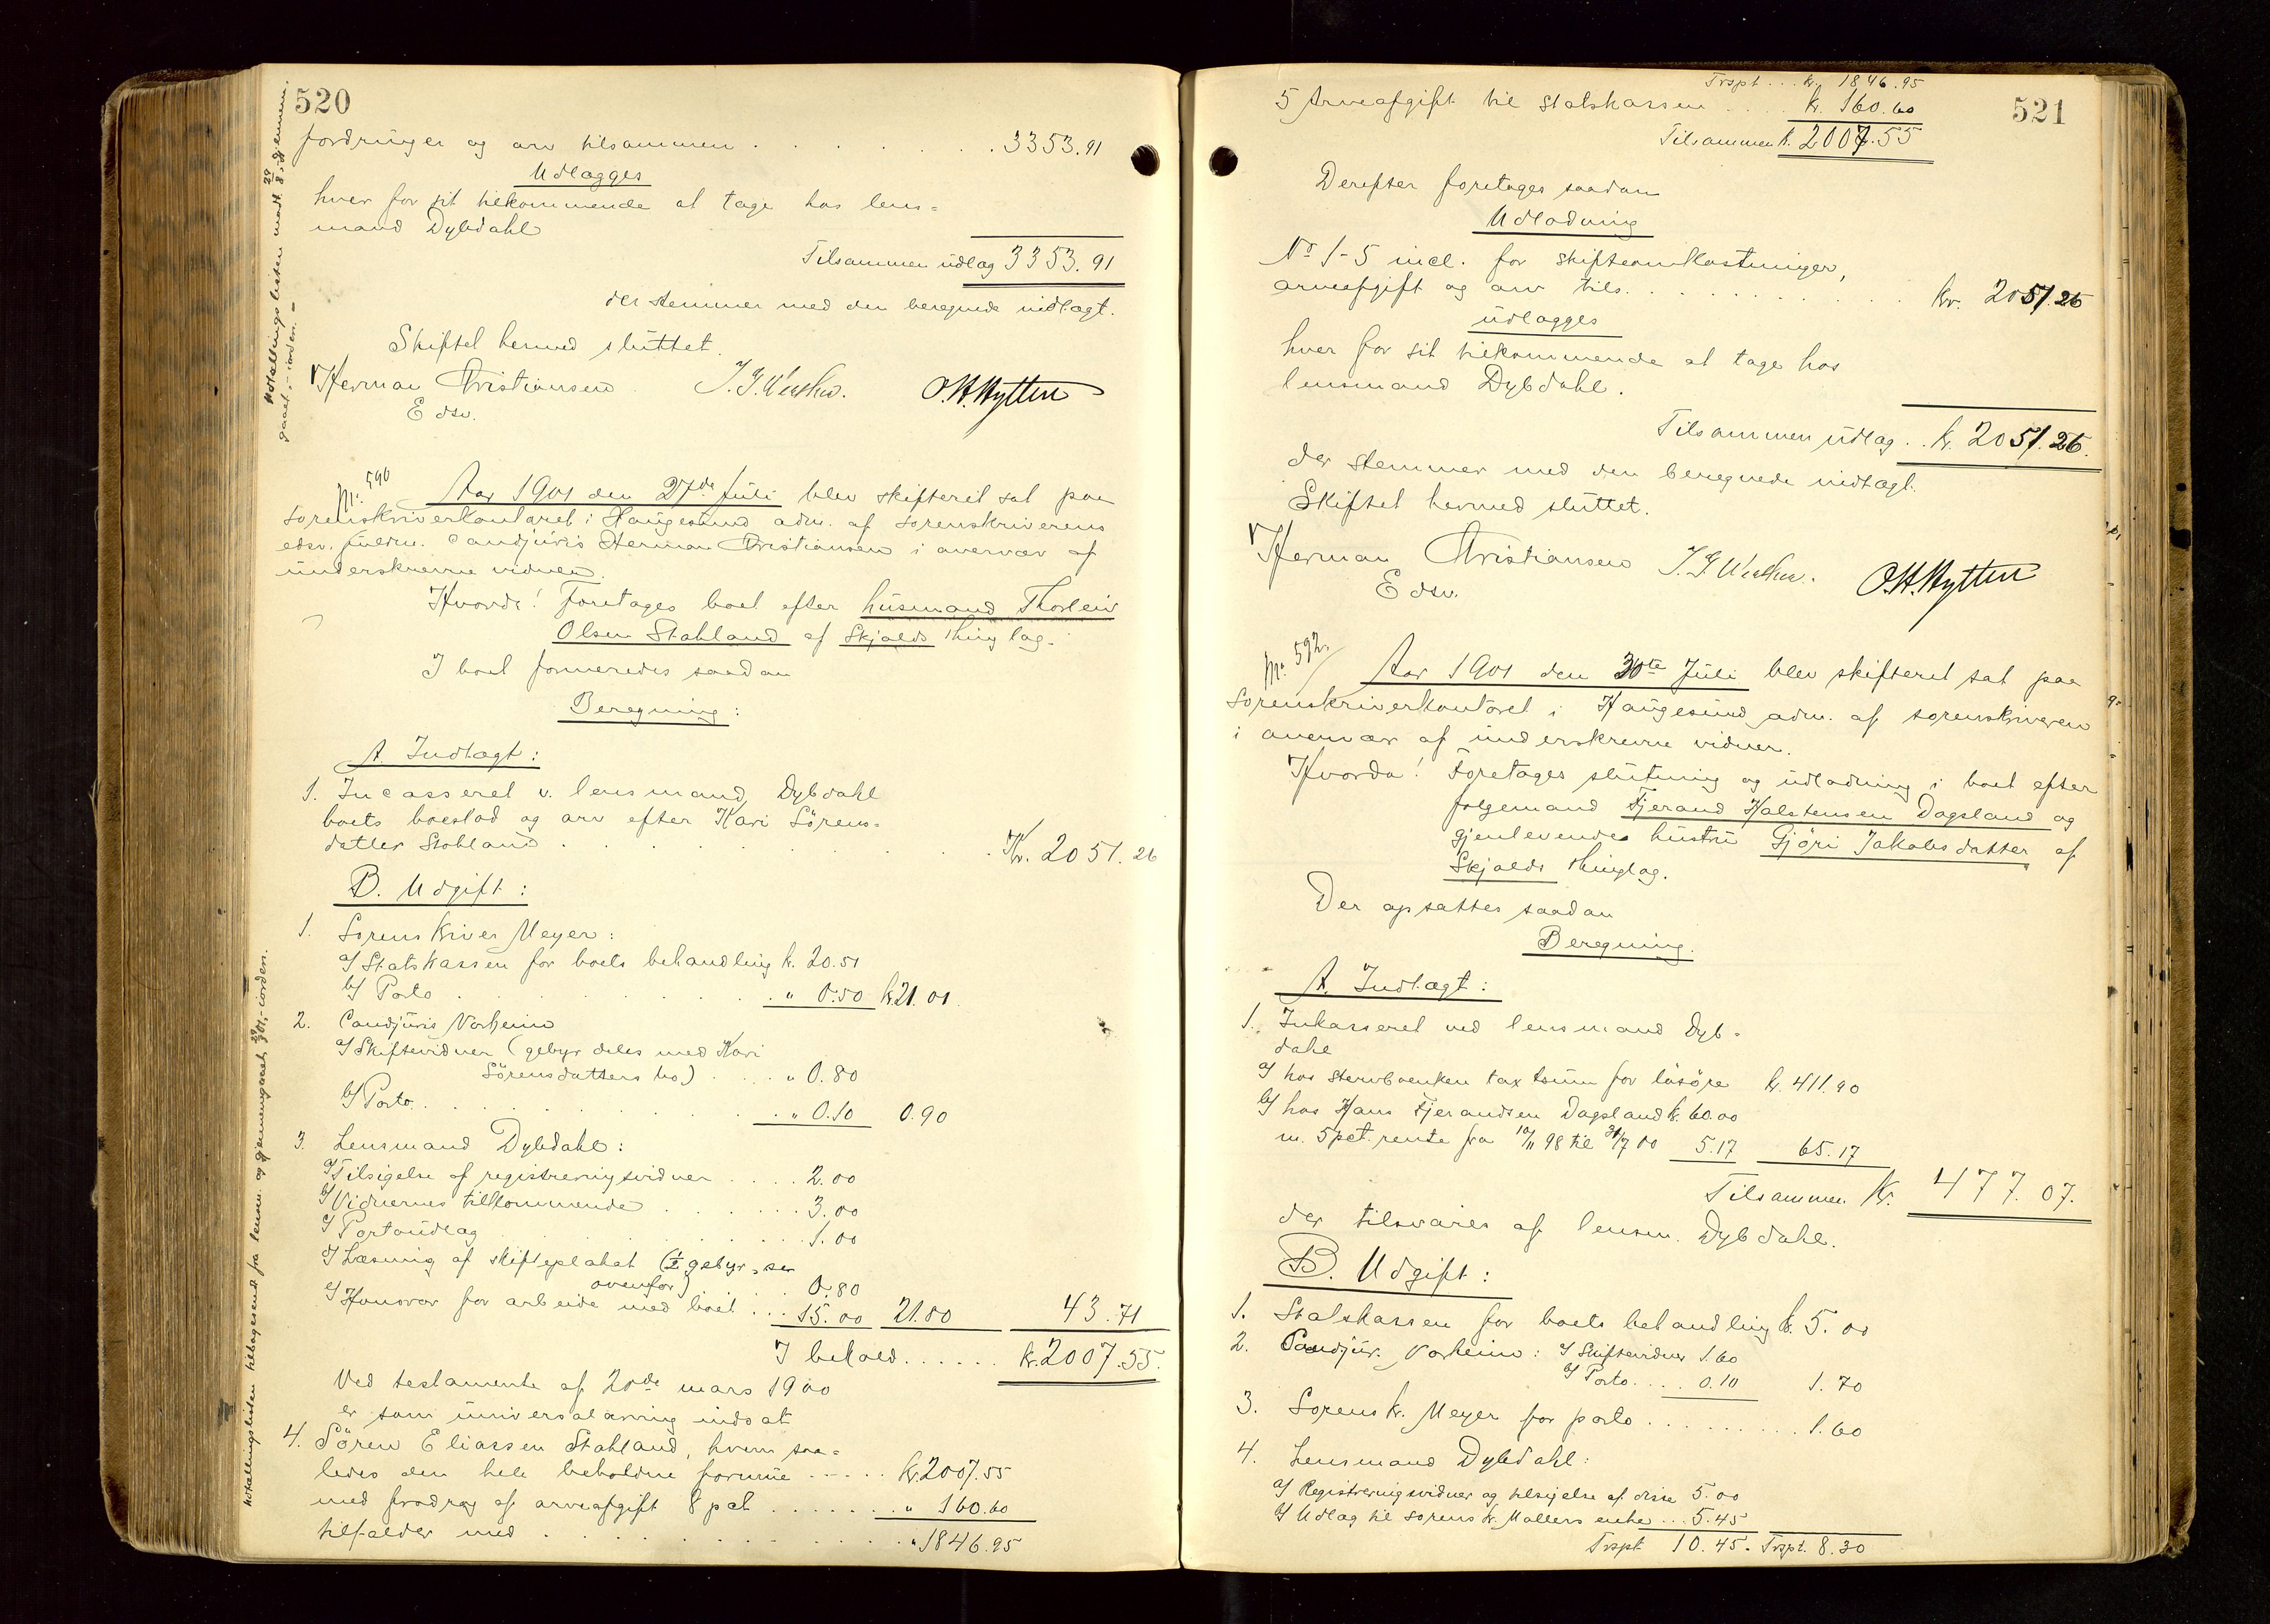 520
fordringer og arv tilsammen . . . . . . . 3353.91
Udlægges
hver for sit tilkommende at tage hos lens=
mand Dybdahl
Tilsammen udlæg 3353.91
der stemmer med den beregnede indtægt.
Skiftet hermed sluttet.
Herman Christiansen
Edsv.
O.H.Hytten
No. 590
Aar 1901 den 27de Juli blev skifteret sat paa
sorenskriverkontoret i Haugesund adm. af sorenskriverens
edsv. fuldm. cand juris Herman Christiansen i overvær af
underskrevne vidner.
Hvorda! Foretages boet efter husmand Thorleiv
Olsen Stakland af Skjolds thinglag.
I boet formeredes saadan
Beregning:
A Indtægt:
1. Incasseret v. lensmand Dybdahl
boets boeslod og arv efter Kari Sörens=
datter Stakland . . . . . . . . Kr. 2051.26
B. Udgift:
1. Sorenskriver Meyer:
a/ Statskassen for boets behandling k. 20.51
b/ Porto . . . . . . " 0.50 kr 21.01
2. Candjuris Vorheim
a/ Skiftevidner (gebyr deles med Kari
Sörensdatters bo) . . . . " 0.80
b/ Porto . . . . . . " 0.10 0.90
3. Lensmand Dybdahl:
a/ Tilsigelse af registreringsvidner . . . . 2.00
b/ Vidnernes tilkommende . . . . . . 3.00
c/ Portoudlæg . . . . . . . 1.00
d/ Læsning af skifteplakat (½ gebyr, se
ovenfor) . . . 0.80
e/ Honorar for arbeide med boet . . . 15.00 21.80 43.71
I behold . . . . . . kr. 2007.55.
Ved testamente af 20de mars 1900
er som universalarving indsat
4. Sören Eliassen Stakland, hvem saa=
ledes den hele beholdne formue . . . . . kr. 2007.55
med fradrag af arveafgift 8 pct . . . . . . " 160.60
tilfalder med . . . . . . . . . " 1846.95
521
Trspt . . . kr. 1846.95
5 Arveafgift til statskassen . . . . k. 160.60
Tilsammen k. 2007.55
Derefter foretages saadan
Udlodning
No 1-5 incl. for skifteomkostninger,
arveafgift og arv tils. . . . . . . . . . . kr. 2051.26
udlægges
hver for sit tilkommende at tage hos
lensmand Dybdahl.
Tilsammen udlæg . . k. 2051.26.
der stemmer med den beregnede indtægt.
Skiftet hermed sluttet.
Herman Christiansen
Edsv.
O.H.Hytten
No. 592.
Aar 1901 den 30te Juli blev skifteret sat paa
sorenskriverkontoret i Haugesund adm. af sorenskriveren
i overvær af underskrevne vidner.
Hvorda! Foretages slutning og udlodning i boet efter
følgemand Tjerand Halstensen Dagsland og
gjenlevende hustru Gjøri Jakobsdatter af
Skjolds thinglag.
Der opsattes saadan
Beregning.
A. Indtægt:
1. Inkasseret ved lensmand Dyb=
dahl
a/ hos stervboenken taxtsum for løsøre k. 411.90
b/ hos Hans Tjerandsen Dagsland k. 60.00
m. 5 pct. rente fra 10/11 98 til 31/7 00 5.17 65.17
Tilsammen Kr. 477.07.
der tilsvares af lensm. Dybdahl.
B. Udgift:
1. Statskassen for boets behandling k. 5.00
2. Candjur. Vorheim: a/ Skiftevidner 1.60
b/ Porto . . . . 0.10 1.70
3. Sorenskr. Meyer for porto . . . . . . . . 1.60
4. Lensmand Dybdahl:
a/ Registreringsvidner og tilsigelse af disse 5.00
b/ Udlæg til sorenskr. Møllers enke . . . 5.45
Trspt 10.45. Trspt. 8.30